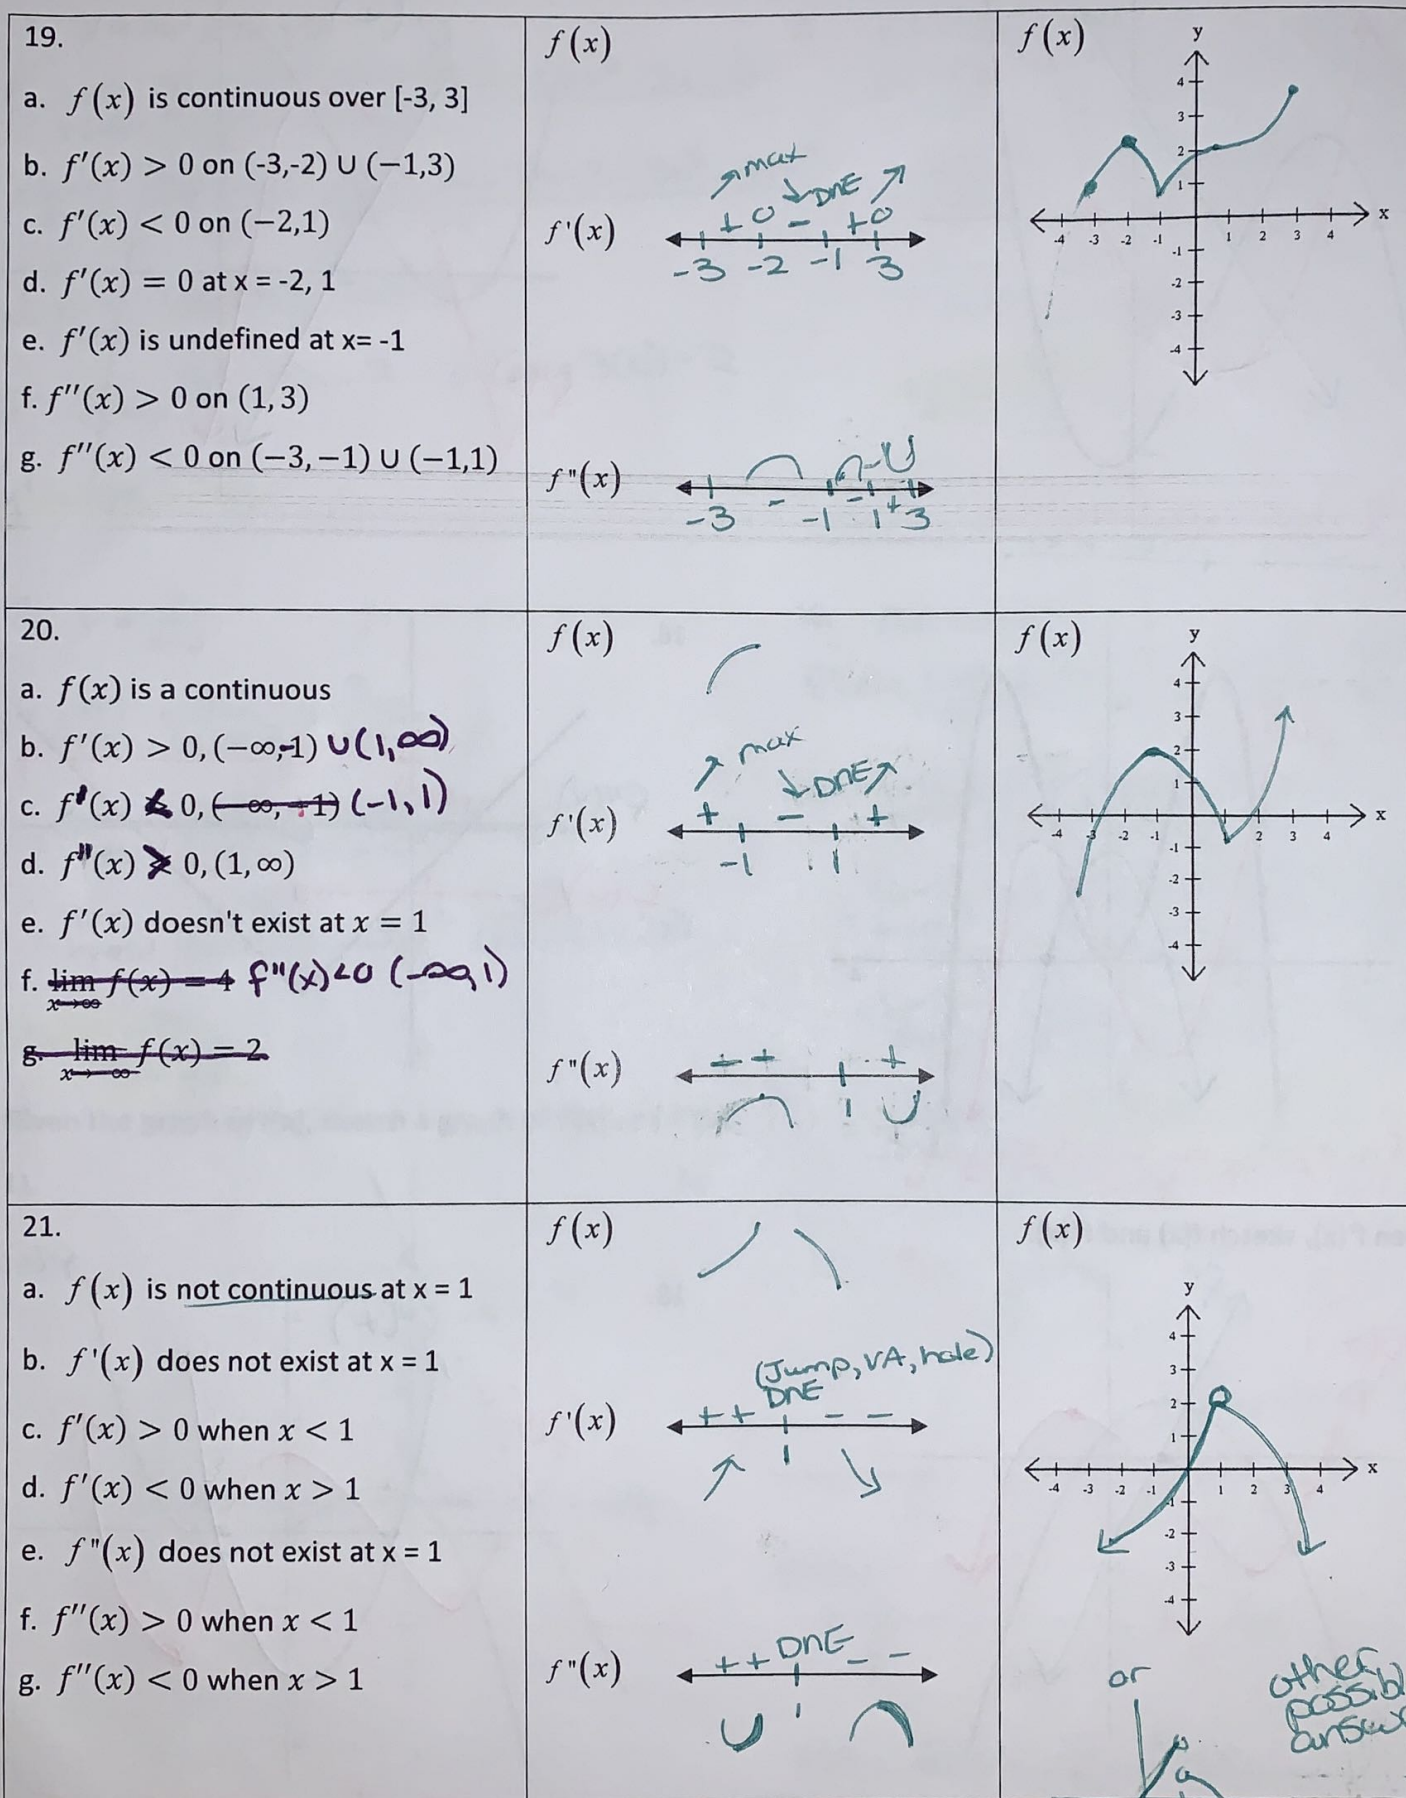 19.
a. f(x) is continuous over [-3, 3]
b. f′(x) > 0 on (-3,-2) ∪ (−1,3)
c. f′(x) < 0 on (−2,1)
d. f′(x) = 0 at x = -2, 1
e. f′(x) is undefined at x= -1
f. f′′(x) > 0 on (1, 3)
g. f′′(x) < 0 on (−3, −1) ∪ (−1,1)
f(x)
max
DNE
+ 0 − + 0
f'(x)
-3 -2 -1 3
f"(x)
- - +
-3 -1 1 3
f(x)
y
4
3
2
1
x
-4 -3 -2 -1 1 2 3 4
-1
-2
-3
-4
20.
a. f(x) is a continuous
b. f′(x) > 0, (−∞,-1) ∪ (1, ∞)
c. f'(x) < 0, (−∞, −1) (-1, 1)
d. f"(x) > 0, (1, ∞)
e. f′(x) doesn't exist at x = 1
f. lim x→∞ f(x) = 4 f"(x) < 0 (-∞, 1)
g. lim x→−∞ f(x) = 2
f(x)
max
DNE
+ − +
f'(x)
-1 1
+
f"(x)
1
f(x)
y
4
3
2
1
x
-4 -3 -2 -1 1 2 3 4
-1
-2
-3
-4
21.
a. f(x) is not continuous at x = 1
b. f'(x) does not exist at x = 1
c. f′(x) > 0 when x < 1
d. f′(x) < 0 when x > 1
e. f"(x) does not exist at x = 1
f. f′′(x) > 0 when x < 1
g. f′′(x) < 0 when x > 1
f(x)
(Jump, VA, hole)
DNE
+ + − −
f'(x)
1
DNE
+ + − −
f"(x)
1
f(x)
y
4
3
2
1
x
-4 -3 -2 -1 1 2 3 4
-1
-2
-3
-4
or
other
possibl
answ